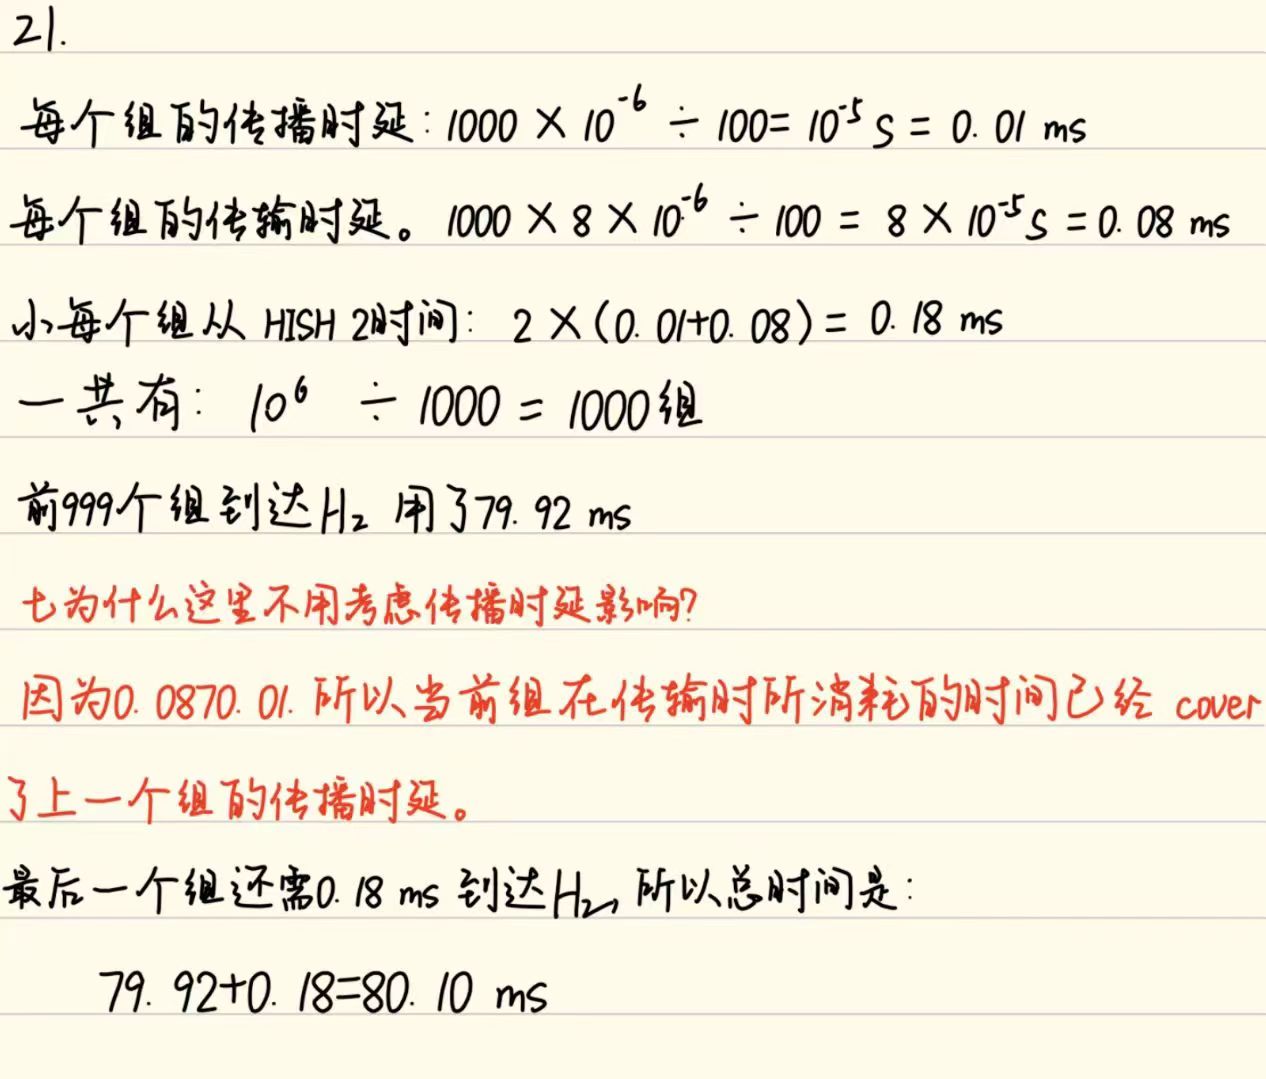 21.
每个组的传播时延：1000 × 10⁻⁶ ÷ 100 = 10⁻⁵ s = 0.01 ms
每个组的传输时延。1000 × 8 × 10⁻⁶ ÷ 100 = 8 × 10⁻⁵ s = 0.08 ms
小每个组从 HISH 2时间：2 × (0.01+0.08) = 0.18 ms
一共有：10⁶ ÷ 1000 = 1000组
前999个组到达H₂ 用了79.92 ms
七为什么这里不用考虑传播时延影响?
因为0.0870.01.所以当前组在传输时所消耗的时间已经 cover
了上一个组的传播时延。
最后一个组还需0.18 ms 到达H₂，所以总时间是：
79.92+0.18=80.10 ms